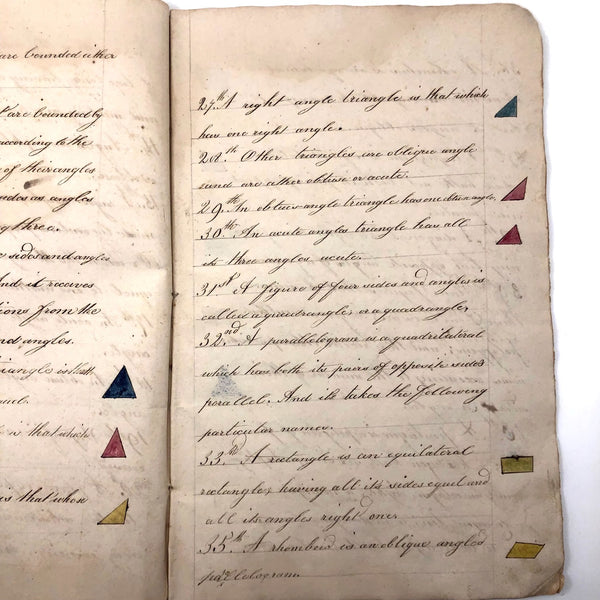 are bounded either
are bounded by
according to the
of their angles
sides as angles
three.
sides and angles
And it receives
from the
and angles.
is that
is that which
is that whose
27.th A right angle triangle is that which
has one right angle.
28.th Other triangles are oblique angle
and are either obtuse or acute.
29.th An obtuse angle triangle has one obtuse angle,
30.th An acute angles triangle has all
its three angles acute.
31st A figure of four sides and angles is
called a quadrangle, or a quadrangle,
32nd. A parallelograne is a quadrilateral
which has both its pairs of opposite sides
parallel. And it takes the following
particular names.
33.rd A rectangle is an equilateral
rectangle, having all its sides equel and
all its angles right one.
35.th A rhomboid is an oblique angled
parallelogram.